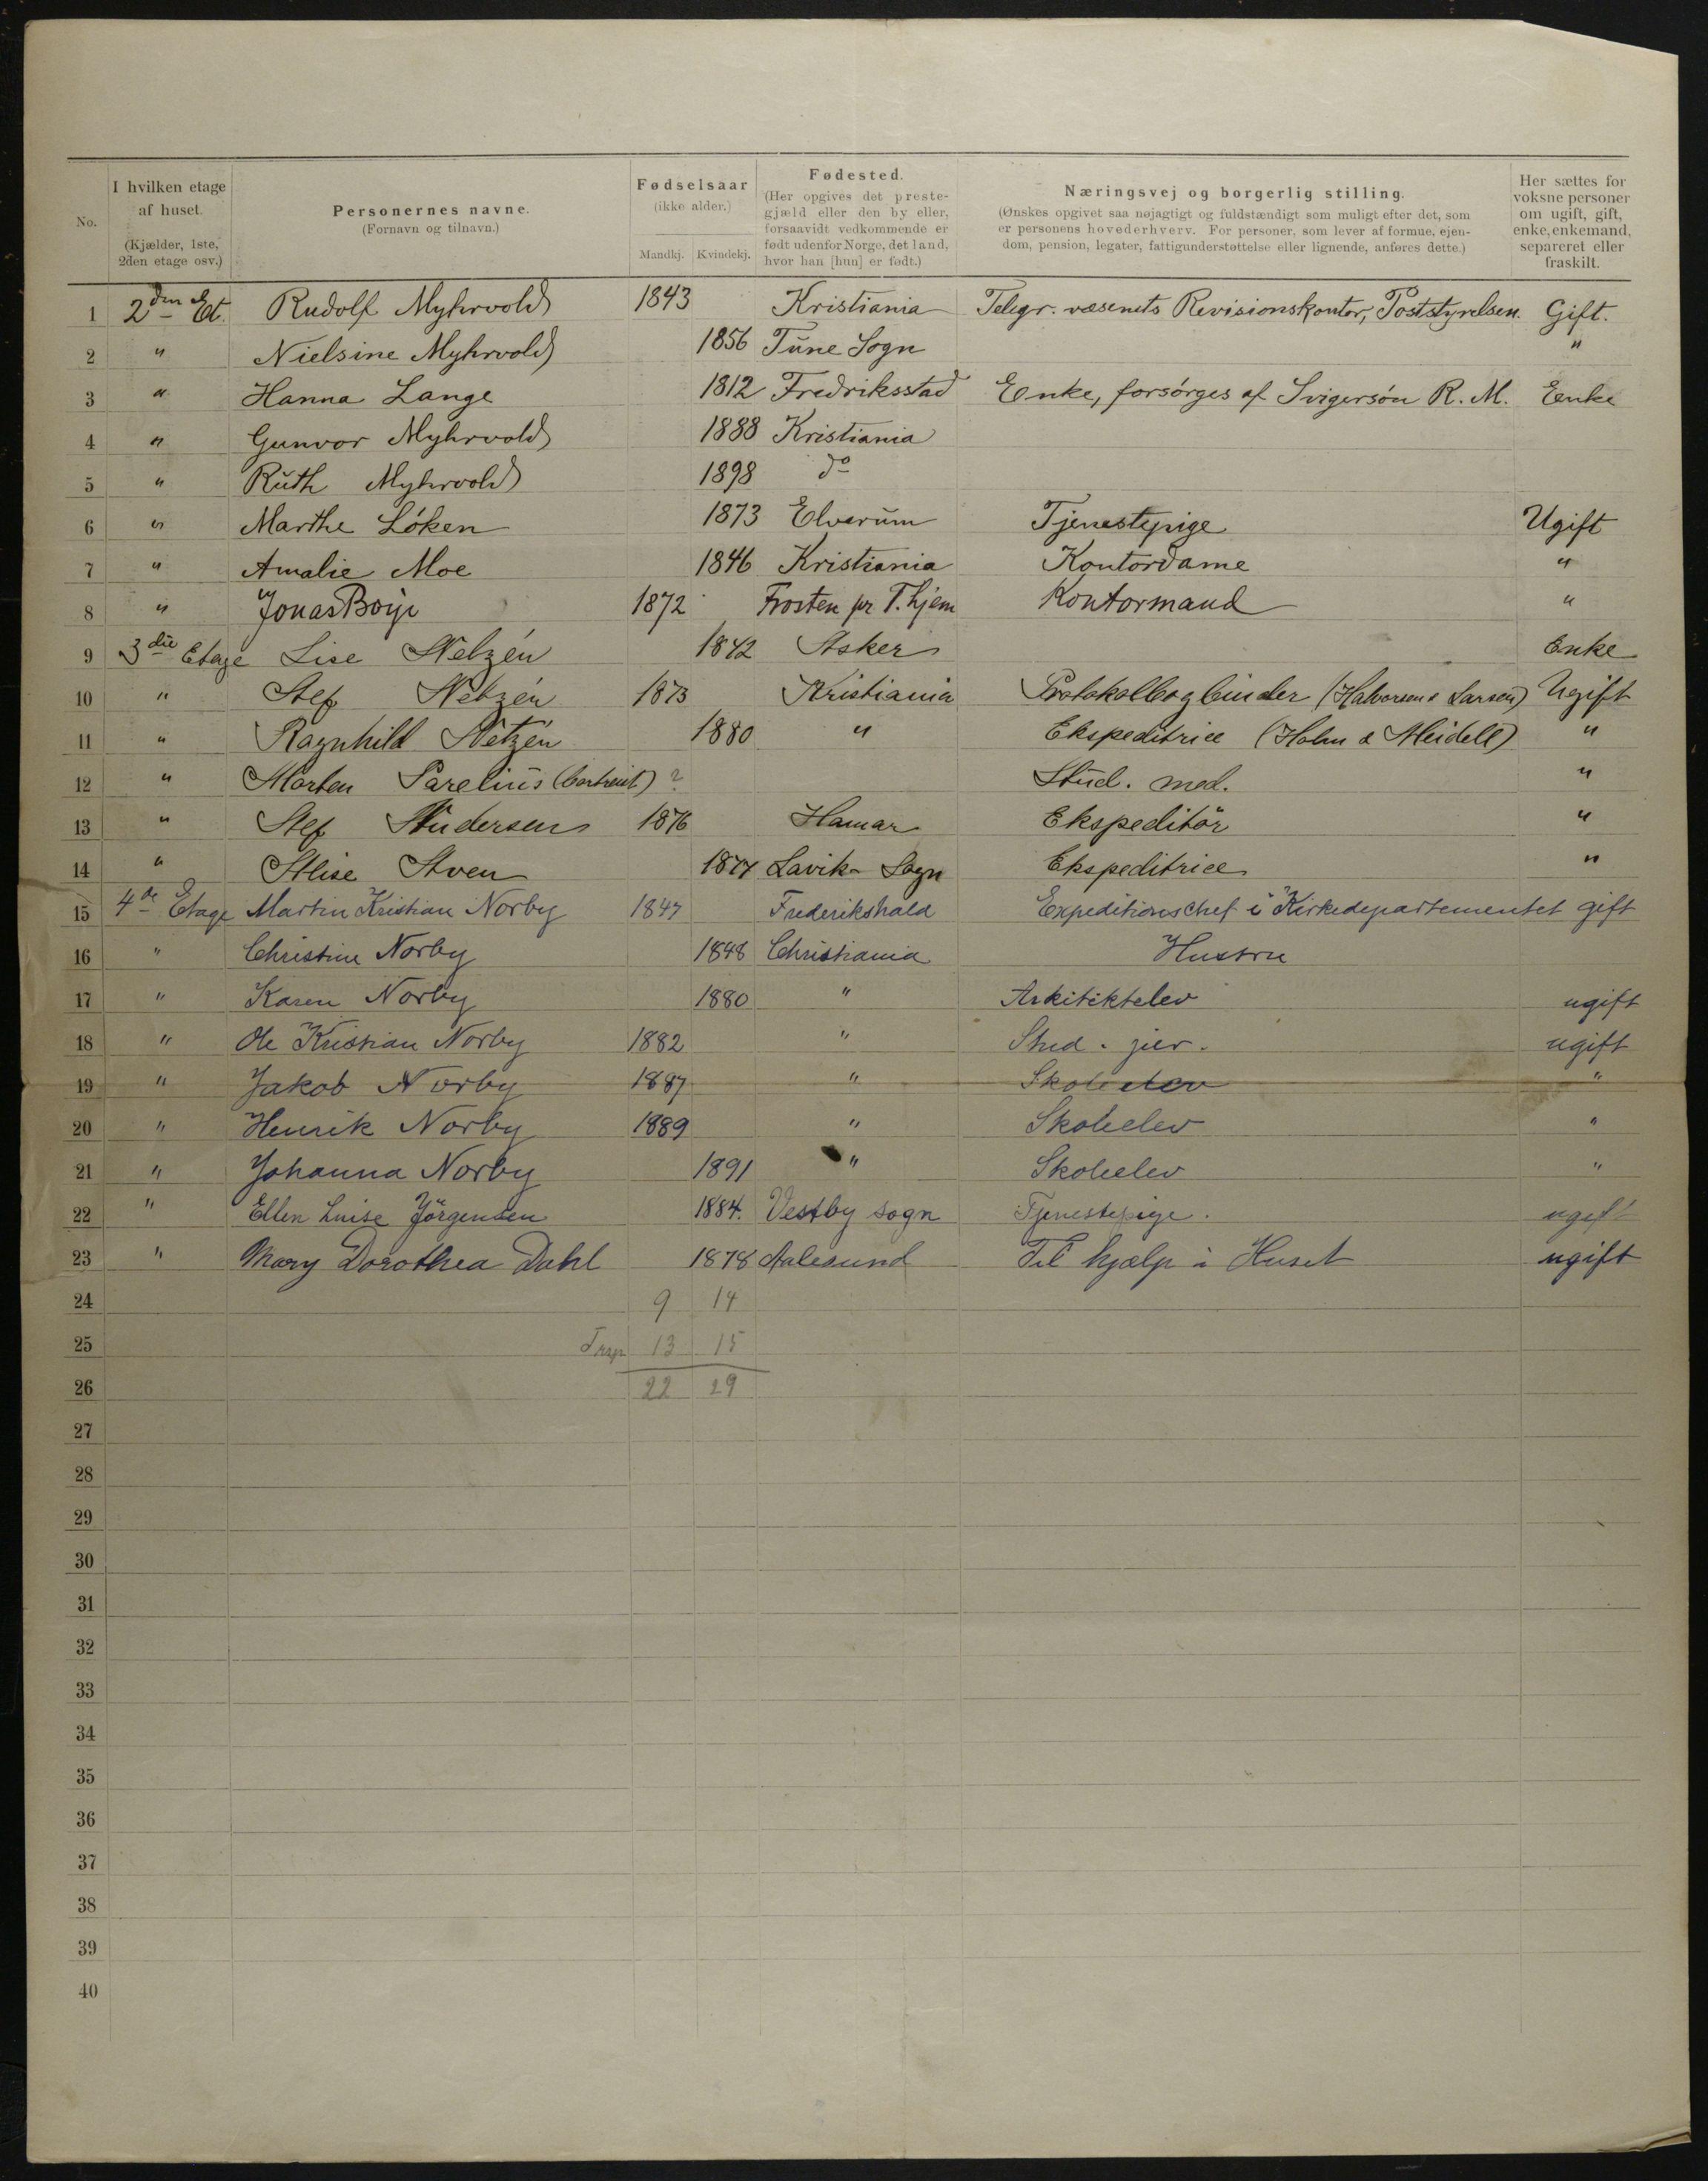 No.
I hvilken etage af huset.
(Kjælder, 1ste, 2den etage osv.)
Personernes navne.
(Fornavn og tilnavn.)
Fødselsaar
(ikke alder.)
Mandkj. Kvindekj.
Fødested.
(Her opgives det prestegjæld eller den by eller, forsaavidt vedkommende er født udenfor Norge, det land, hvor han [hun] er født.)
Næringsvej og borgerlig stilling.
(Ønskes opgivet saa nøjagtigt og fuldstændigt som muligt efter det, som er personens hovederhverv. For personer, som lever af formue, ejendom, pension, legater, fattigunderstøttelse eller lignende, anføres dette.)
Her sættes for voksne personer om ugift, gift, enke, enkemand, separeret eller fraskilt.
1 2den Et. Rudolf Myhrvold 1843 Kristiania Telegr. væsenets Revisionskontor, Poststyrelsen. Gift.
2 " Nielsine Myhrvold 1856 Tune Sogn "
3 " Hanna Lange 1812 Fredriksstad Enke, forsørges af Svigersøn R. M. Enke
4 " Gunvor Myhrvold 1888 Kristiania
5 " Ruth Myhrvold 1898 do
6 " Marthe Løken 1873 Elverum Tjenestepige Ugift
7 " Amalie Moe 1846 Kristiania Kontordame "
8 " Jonas 1872 Frosten pr T.hjem Kontormand "
9 3die Etage Lise Netzén 1842 Asker Enke
10 " Netzén 1873 Kristiania Protokolbogbinder (Halvorsen & Larsen) Ugift
11 " Ragnhild Netzén 1880 " Ekspeditrice (Holm & Meidell) "
12 " Morten Parelius (bortreist) ? Stud. med. "
13 " Andersen 1876 Hamar Ekspeditør "
14 " Aven 1877 Lavik Sogn Ekspeditrice "
15 4de Etage Martin Kristian Norby 1847 Frederikshald Expeditionschef i Kirkedepartementet gift
16 " Christine Norby 1848 Christiania Hustru
17 " Karen Norby 1880 " Arkitektelev ugift
18 " Ole Kristian Norby 1882 " Stud. jur. ugift
19 " Jakob Norby 1887 " Skoleelev "
20 " Henrik Norby 1889 " Skoleelev "
21 " Johanna Norby 1891 " Skoleelev "
22 " Ellen Luise Jörgensen 1884. Vestby sogn Tjenestepige. ugift
23 " Mary Dorothea Dahl 1878 Aalesund Til hjælp i Huset ugift
24 9 14
25 Trsp 13 15
26 22 29
27
28
29
30
31
32
33
34
35
36
37
38
39
40